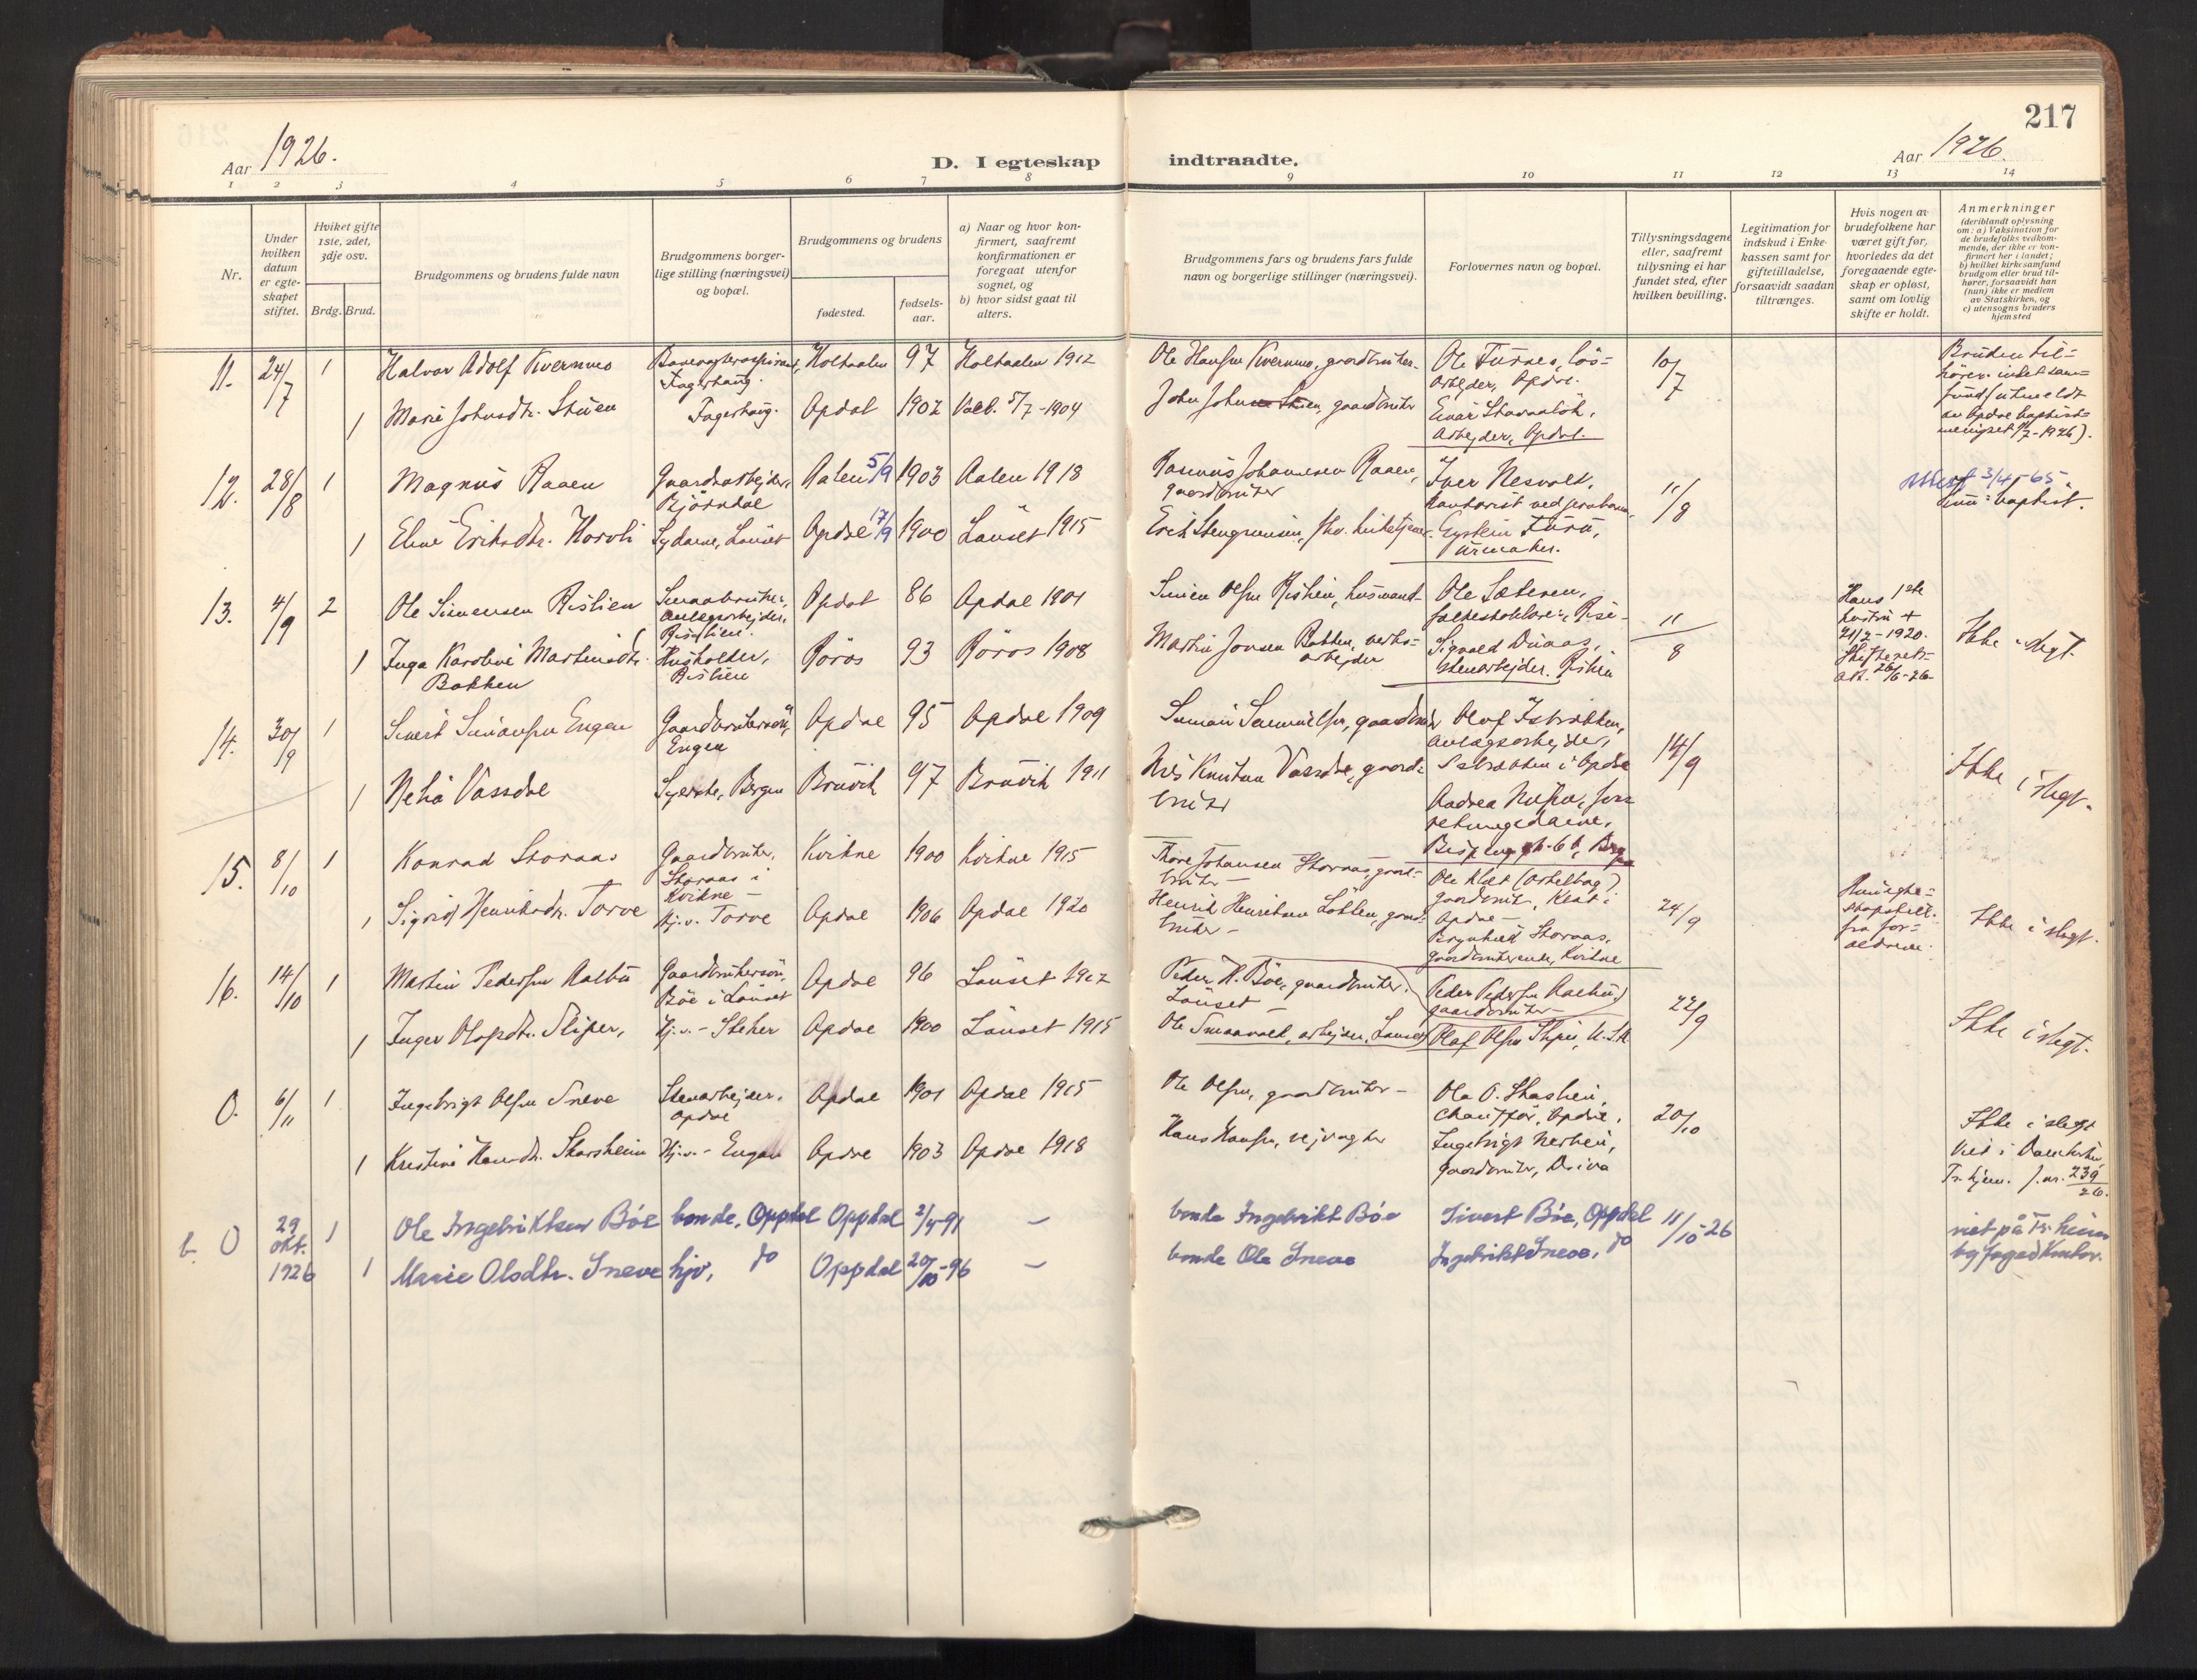 217
Aar 1926.
D. I egteskap indtraadte.
Aar 1926.
1 2 3 4 5 6 7 8 9 10 11 12 13 14
Nr.
Under hvilken datum er egteskapet stiftet.
Hviket gifte 1ste, 2det, 3dje osv.
Brdg. Brud.
Brudgommens og brudens fulde navn
Brudgommens borgerlige stilling (næringsvei) og bopæl.
Brudgommens og brudens
fødested.
fødsels-aar.
a) Naar og hvor konfirmert, saafremt konfirmationen er foregaat utenfor sognet, og
b) hvor sidst gaat til alters.
Brudgommens fars og brudens fars fulde navn og borgerlige stillinger (næringsvei).
Forlovernes navn og bopæl.
Tillysningsdagene eller, saafremt tillysning ei har fundet sted, efter hvilken bevilling.
Legitimation for indskud i Enkekassen samt for giftetilladelse, forsaavidt saadan tiltrænges.
Hvis nogen av brudefolkene har været gift før, hvorledes da det foregaaende egteskap er opløst, samt om lovlig skifte er holdt.
Anmerkninger
(deriblandt oplysning om: a) Vaksination for de brudefolks vedkommende, der ikke er konfirmert her i landet; b) hvilket kirkesamfund brudgom eller brud tilhører, forsaavidt han (hun) ikke er medlem av Statskirken, og c) utensogns bruders hjemsted
11. 24/7 1 Halvor Adolf Kvernmo Fagerhaug. Holtaalen 97 Holtaalen 1912 Ole Hansen Kvernmo, gaardbruker. Ole Furnes, lös-arbejder, Opdal. 10/7 Bruden til-hører intet sam-fund
1 Marie Johnsdtr. Stuen Fagerhaug. Opdal 1902 5/7-1904 John Johnsen Stuen, gaardbruker Einar Arbejder, Opdal. (utmeldt av Opdal baptist-menighet 1/7-1926).
12. 28/8 1 Magnus Raaen Gaardsarbejder, Bjørndal Aalen 5/9 1903 Aalen 1918 Rasmus Johannesen Raaen, gaardbruker Iver Nesvolt, kontorist ved jernbanen 11/8 3/4-65. Hun: baptist.
1 Eline Eriksdtr. Horvli Sydame, Lönset Opdal 17/9 1900 Lönset 1915 Erik Stengrimsen, fhv. kirketjener. Eystein Furu, urmaker.
13. 4/9 2 Ole Simensen Rislien Smaabruker, anlegsarbejder, Rislien. Opdal 86 Opdal 1901 Simen Olsen Rislien, husmand Ole Sæteren, Rise 11/8 Hans 1ste hustru + 21/2-1920. Skifteretsatt. 26/6-26 Ikke i slegt.
1 Inga Karoline Martinsdtr. Bakken Husholder, Rislien Röros 93 Röros 1908 Martin Jonsen Bakken, verks-arbejder Sigvald Duaas, stenarbejder, Rislien
14. 30/9 1 Sivert Simonsen Engan Gaardbrukersön, Engan Opdal 95 Opdal 1909 Simon Samuelsen, gaardbruker Olaf Isbrekken, anlegsarbejder, Isbrekken i Opdal 14/9 Ikke i slegt.
1 Nelia Vassdal Syerske, Bergen Bruvik 97 Bruvik 1911 Nils Knutsen Vassdal, gaard-bruker Andrea
15. 8/10 1 Konrad Storaas Gaardbruker, Storaas i Kvikne Kvikne 1900 Kvikne 1915 Thore Johansen Storaas, gaard-bruker Ole Klet (Arhelbag?) gaardbruk., Klet i Opdal 24/9 Ikke i slegt.
1 Sigrid Henriksdtr. Torve Hj.v. Torve Opdal 1906 Opdal 1920 Henrik Henriksen Lökken, gaard-bruker Brynhild Storaas, gaardbrukerenke, Kvikne fra for-ældrene.
16. 14/10 1 Martin Pedersen Aalbu Gaardbrukersön, Böe i Lönset Opdal 96 Lönset 1912 Peder H. Böe, gaardbruker, Lönset Peder Pedersen Aalbu, gaardbruker 22/9 Ikke i slegt.
1 Inger Olafsdtr. Sliper, Hj.v. - Steker Opdal 1900 Lönset 1915 Ole Smaavoll, arbejder, Lönset Olaf Olsen Sliper
0. 6/11 1 Ingebrigt Olsen Sneve Stenarbejder, Opdal Opdal 1901 Opdal 1915 Ole Olsen, gaardbruker Ola O. Skaslien, Chauffør, Opdal. 20/10 Ikke i slegt
1 Kristine Hansdtr. Skarsheim Hj.v. - Engan Opdal 1903 Opdal 1918 Hans Hansen, vejvogter Ingebrigt Nerlien, gaardbruker, Driva Viet i Domkirken, Tr.hjem. j.nr. 239/26.
b. 0 29 okt. 1926 1 Ole Ingebriktsen Bøe bonde, Oppdal Oppdal 2/4-91 – bonde Ingebrikt Bøe Sivert Bøe, Oppdal 11/10-26 viet på Tr.heim
1 Marie Olsdtr. Sneve hjv, do Oppdal 20/10-96 – bonde Ole Sneve Ingebrikt Sneve, do byfogedkontor.